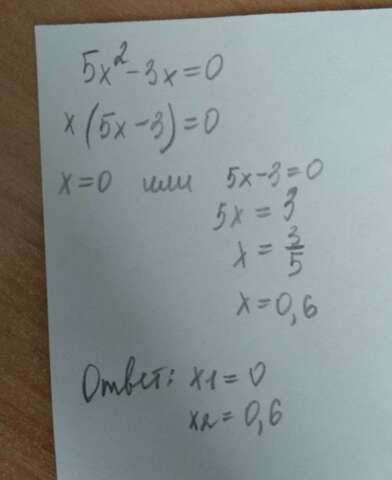 5x²-3x=0
x(5x-3)=0
x=0 или 5x-3=0
5x=3
x=3/5
x=0,6
Ответ: x1=0
x2=0,6